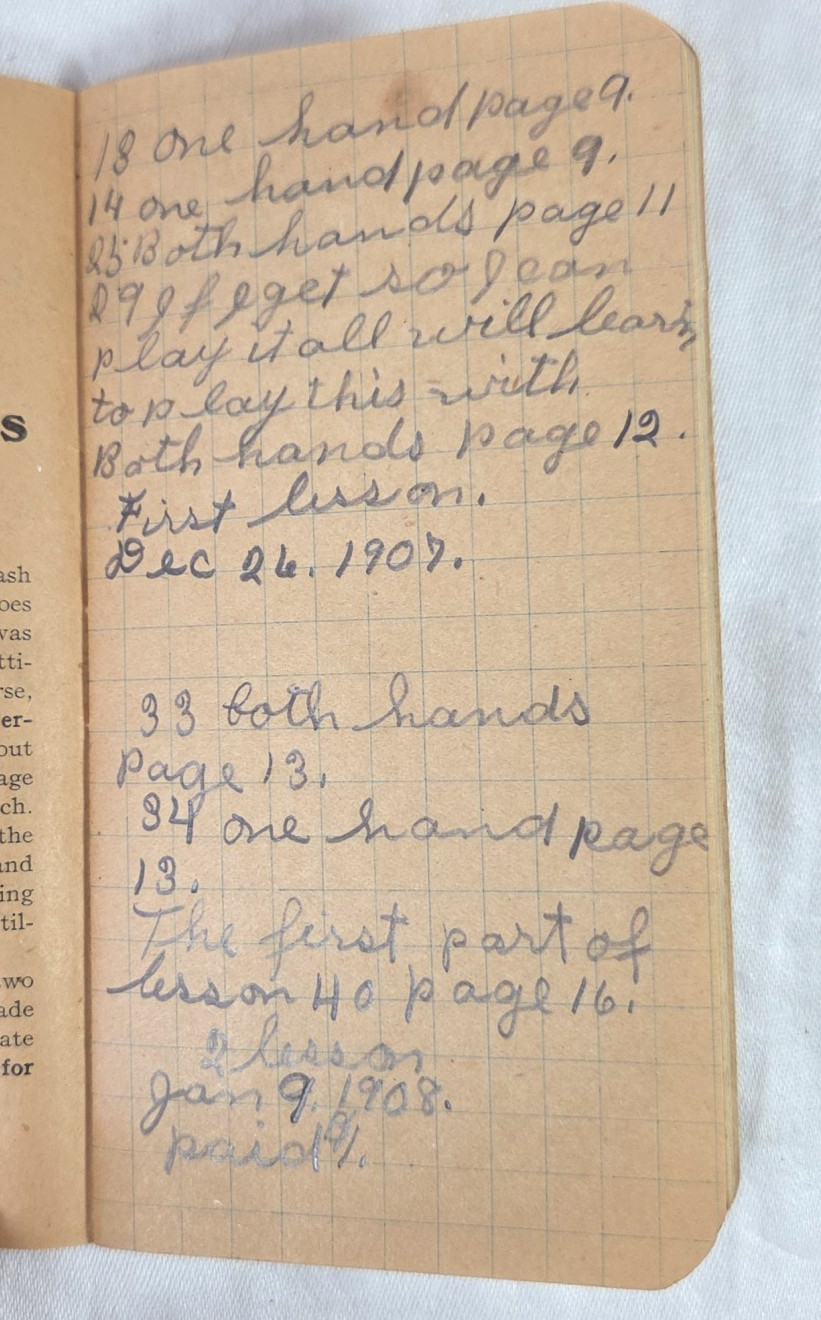 s
ash
oes
was
tti-
rse,
er-
out
age
ch.
the
and
ing
til-
two
ade
ate
for
18 one hand page 9.
14 one hand page 9.
25 Both hands page 11
29 If I get so I can
play it all will learn
to play this with
Both hands page 12.
First lesson.
Dec 26. 1907.
33 both hands
Page 13.
34 one hand page
13.
The first part of
lesson 40 page 16.
2 lesson
Jan 9. 1908.
paid